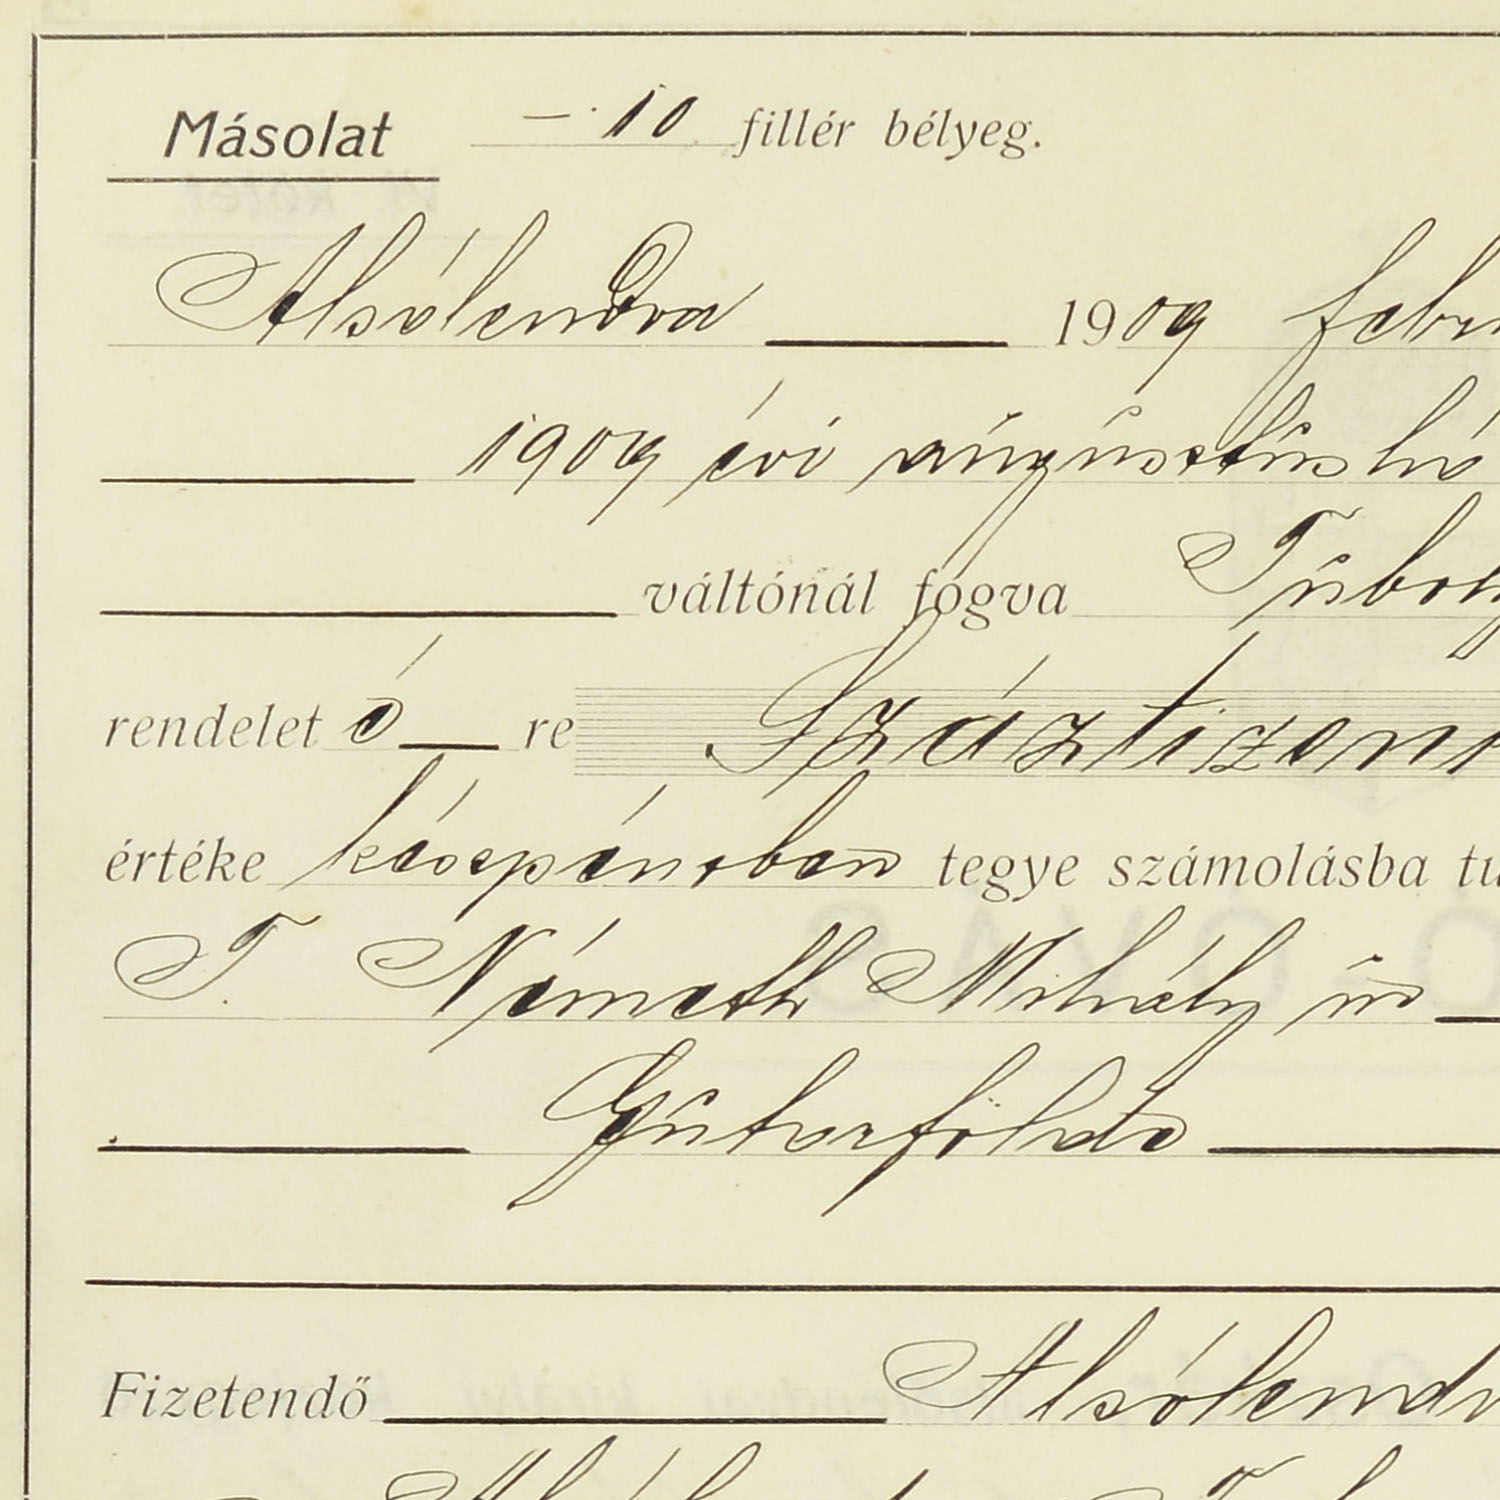 Másolat – 10 fillér bélyeg.
Alsólendva 1909 febru
1909 évi augusztus hó
váltónál fogva Tuboly
rendelet é re Száztizen
értéke készpénzben tegye számolásba tu
T. Németh Mihály úr
Gutorfölde
Fizetendő Alsólendv